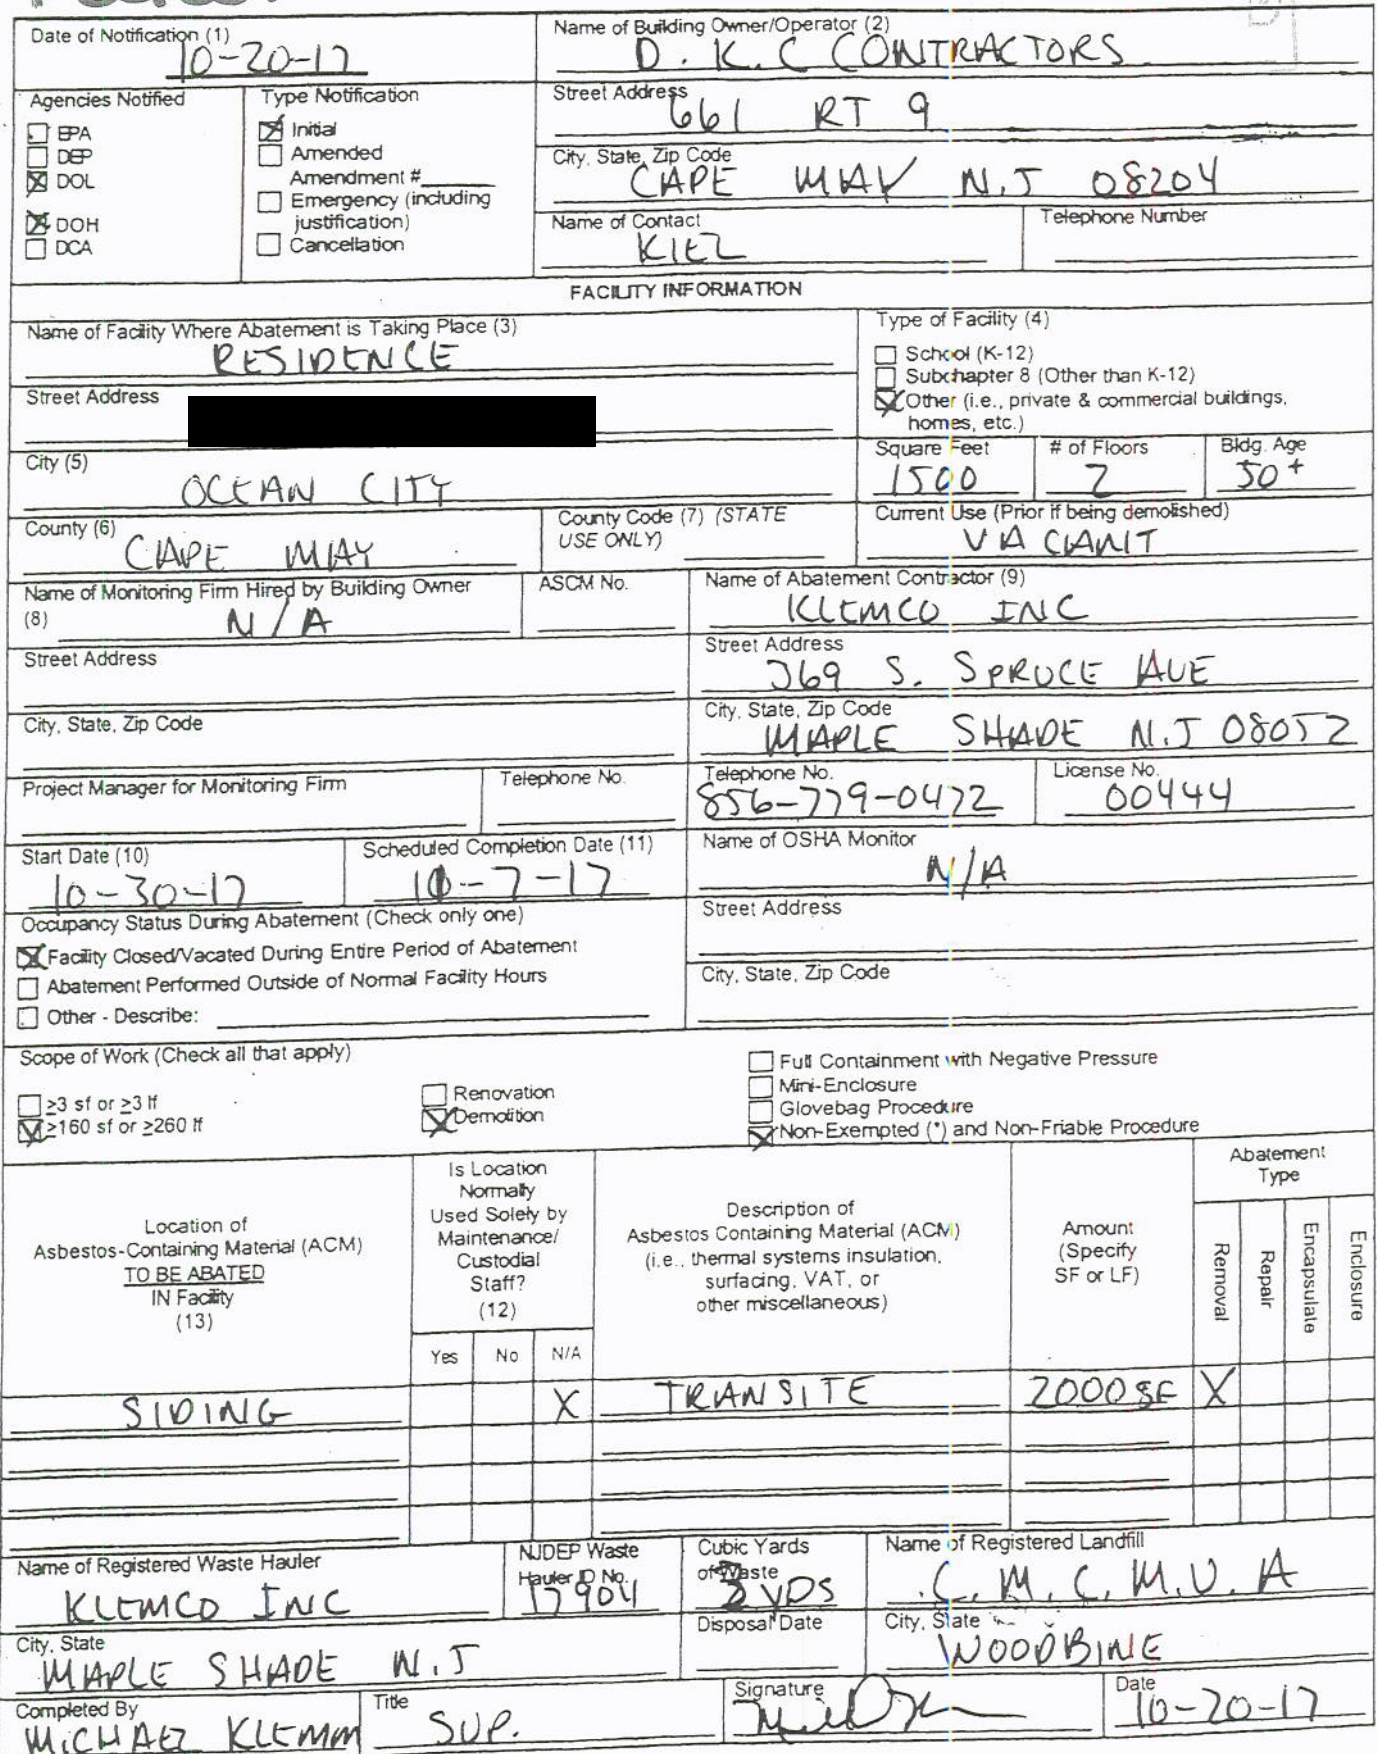 Date of Notification (1)
10-20-17
Name of Building Owner/Operator (2)
D. K. C CONTRACTORS
Agencies Notified
EPA
DEP
DOL
DOH
DCA
Type Notification
Initial
Amended
Amendment #
Emergency (including
justification)
Cancellation
Street Address
661 RT 9
City, State, Zip Code
CAPE MAY N.J 08204
Name of Contact
Telephone Number
FACILITY INFORMATION
Name of Facility Where Abatement is Taking Place (3)
RESIDENCE
Street Address
City (5)
OCEAN CITY
Type of Facility (4)
School (K-12)
Subchapter 8 (Other than K-12)
Other (i.e., private & commercial buildings,
homes, etc.)
Square Feet # of Floors Bldg. Age
1500 2 50+
County (6)
CAPE MAY
County Code (7) (STATE
USE ONLY)
Current Use (Prior if being demolished)
VACANT
Name of Monitoring Firm Hired by Building Owner
(8) N/A
ASCM No.
Name of Abatement Contractor (9)
KLEMCO INC
Street Address
Street Address
369 S. SPRUCE AVE
City, State, Zip Code
City, State, Zip Code
MAPLE SHADE N.J 08052
Project Manager for Monitoring Firm
Telephone No.
Telephone No.
856-779-0472
License No.
00444
Start Date (10)
10-30-17
Scheduled Completion Date (11)
-7-17
Name of OSHA Monitor
N/A
Occupancy Status During Abatement (Check only one)
Facility Closed/Vacated During Entire Period of Abatement
Abatement Performed Outside of Normal Facility Hours
Other - Describe:
Street Address
City, State, Zip Code
Scope of Work (Check all that apply)
≥3 sf or ≥3 lf
≥160 sf or ≥260 lf
Renovation
Demolition
Full Containment with Negative Pressure
Mini-Enclosure
Glovebag Procedure
Non-Exempted (*) and Non-Friable Procedure
Location of
Asbestos-Containing Material (ACM)
TO BE ABATED
IN Facility
(13)
Is Location
Normally
Used Solely by
Maintenance/
Custodial
Staff?
(12)
Yes No N/A
Description of
Asbestos Containing Material (ACM)
(i.e., thermal systems insulation,
surfacing, VAT, or
other miscellaneous)
Amount
(Specify
SF or LF)
Abatement
Type
Removal
Repair
Encapsulate
Enclosure
SIDING X TRANSITE 2000 SF X
Name of Registered Waste Hauler
KLEMCO INC
NJDEP Waste
Hauler ID No.
17904
Cubic Yards
of Waste
YDS
Name of Registered Landfill
C.M.C.M.U.A
City, State
MAPLE SHADE N.J
Disposal Date
City, State
WOODBINE
Completed By
MICHAEL KLEMM
Title
SUP.
Signature
Date
10-20-17